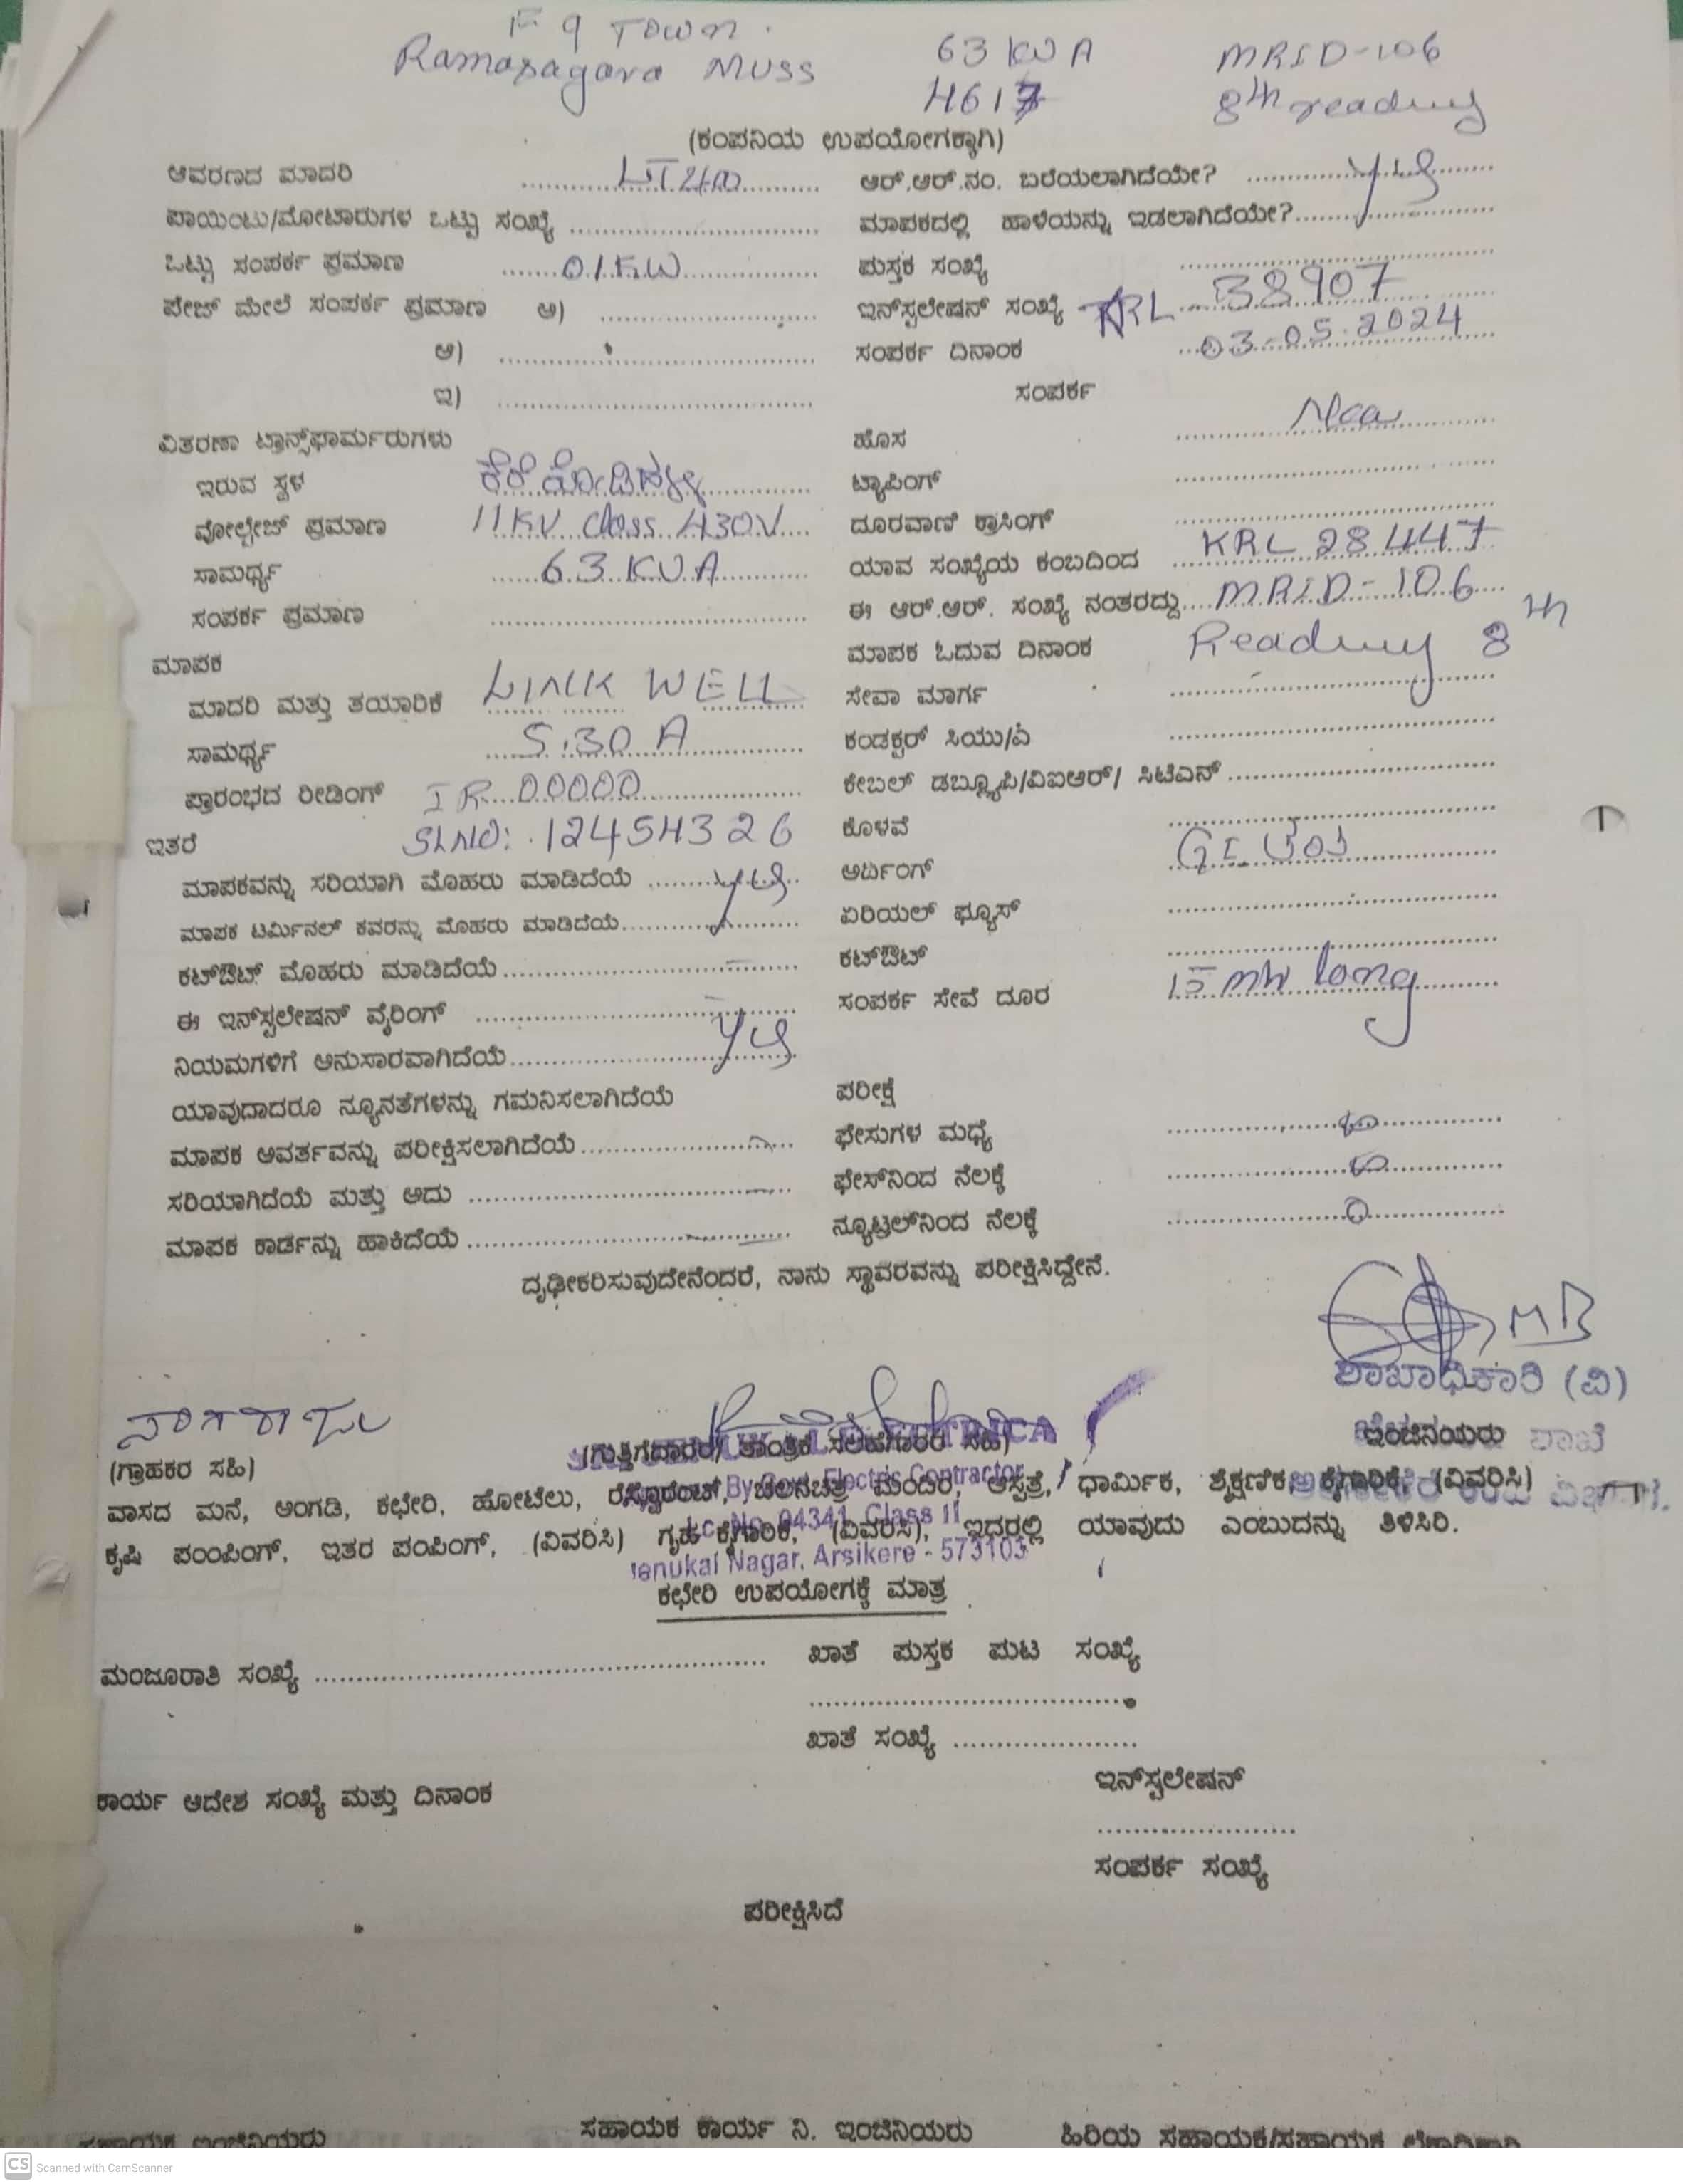 F 9 Town.
Ramasagara MUSS 63 KVA MRID-106
4617 8th reading
(ಕಂಪನಿಯ ಉಪಯೋಗಕ್ಕಾಗಿ)
ಆವರಣದ ಮಾದರಿ ಆರ್.ಆರ್.ನಂ. ಬರೆಯಲಾಗಿದೆಯೇ? yes
ಪಾಯಿಂಟು/ಮೋಟಾರುಗಳ ಒಟ್ಟು ಸಂಖ್ಯೆ ಮಾಪಕದಲ್ಲಿ ಹಾಳೆಯನ್ನು ಇಡಲಾಗಿದೆಯೇ?
ಒಟ್ಟು ಸಂಪರ್ಕ ಪ್ರಮಾಣ 0.1 KW ಪುಸ್ತಕ ಸಂಖ್ಯೆ
ಪೇಜ್ ಮೇಲೆ ಸಂಪರ್ಕ ಪ್ರಮಾಣ ಅ) ಇನ್‌ಸ್ಟಲೇಷನ್ ಸಂಖ್ಯೆ KRL 38907
ಆ) ಸಂಪರ್ಕ ದಿನಾಂಕ 03-05-2024
ಇ) ಸಂಪರ್ಕ
ವಿತರಣಾ ಟ್ರಾನ್ಸ್‌ಫಾರ್ಮರುಗಳು ಹೊಸ New
ಇರುವ ಸ್ಥಳ ಕೆರೆಕೋಡಿಹಳ್ಳಿ ಟ್ಯಾಪಿಂಗ್
ವೋಲ್ಟೇಜ್ ಪ್ರಮಾಣ 11KV class 430V ದೂರವಾಣಿ ಕ್ರಾಸಿಂಗ್
ಸಾಮರ್ಥ್ಯ 63 KVA ಯಾವ ಸಂಖ್ಯೆಯ ಕಂಬದಿಂದ KRL 28447
ಸಂಪರ್ಕ ಪ್ರಮಾಣ ಈ ಆರ್.ಆರ್. ಸಂಖ್ಯೆ ನಂತರದ್ದು MRID-106
ಮಾಪಕ ಮಾಪಕ ಓದುವ ದಿನಾಂಕ Reading 8th
ಮಾದರಿ ಮತ್ತು ತಯಾರಿಕೆ LINK WELL ಸೇವಾ ಮಾರ್ಗ
ಸಾಮರ್ಥ್ಯ 5.30 A ಕಂಡಕ್ಟರ್ ಸಿಯು/ಎ
ಪ್ರಾರಂಭದ ರೀಡಿಂಗ್ IR 00000 ಕೇಬಲ್ ಡಬ್ಲ್ಯೂಪಿ/ವಿಐಆರ್/ ಸಿಟಿಎನ್
ಇತರೆ SLNO: 12454326 ಕೊಳವೆ
ಮಾಪಕವನ್ನು ಸರಿಯಾಗಿ ಮೊಹರು ಮಾಡಿದೆಯೆ yes ಅರ್ದಿಂಗ್ GI
ಮಾಪಕ ಟರ್ಮಿನಲ್ ಕವರನ್ನು ಮೊಹರು ಮಾಡಿದೆಯೆ ಏರಿಯಲ್ ಫ್ಯೂಸ್
ಕಟ್‌ಔಟ್ ಮೊಹರು ಮಾಡಿದೆಯೆ ಕಟ್‌ಔಟ್
ಈ ಇನ್‌ಸ್ಟಲೇಷನ್ ವೈರಿಂಗ್ ಸಂಪರ್ಕ ಸೇವೆ ದೂರ 15 mtr long
ನಿಯಮಗಳಿಗೆ ಅನುಸಾರವಾಗಿದೆಯೆ yes
ಯಾವುದಾದರೂ ನ್ಯೂನತೆಗಳನ್ನು ಗಮನಿಸಲಾಗಿದೆಯೆ ಪರೀಕ್ಷೆ
ಮಾಪಕ ಆವರ್ತವನ್ನು ಪರೀಕ್ಷಿಸಲಾಗಿದೆಯೆ ಫೇಸುಗಳ ಮಧ್ಯೆ
ಸರಿಯಾಗಿದೆಯೆ ಮತ್ತು ಅದು ಫೇಸ್‌ನಿಂದ ನೆಲಕ್ಕೆ
ಮಾಪಕ ಕಾರ್ಡನ್ನು ಹಾಕಿದೆಯೆ ನ್ಯೂಟ್ರಲ್‌ನಿಂದ ನೆಲಕ್ಕೆ 0
ದೃಢೀಕರಿಸುವುದೇನೆಂದರೆ, ನಾನು ಸ್ಥಾವರವನ್ನು ಪರೀಕ್ಷಿಸಿದ್ದೇನೆ.
MB
ಶಾಖಾಧಿಕಾರಿ (ವಿ)
ನಾಗರಾಜು (ಗುತ್ತಿಗೆದಾರರ/ ತಾಂತ್ರಿಕ ಸಲಹೆಗಾರರ ಸಹಿ) ಇಂಜಿನಿಯರು ಶಾಖೆ
(ಗ್ರಾಹಕರ ಸಹಿ)
By Govt. Electric Contractor
ವಾಸದ ಮನೆ, ಅಂಗಡಿ, ಕಛೇರಿ, ಹೋಟೆಲು, ರೆಸ್ಟೊರೆಂಟ್, ಚಲನಚಿತ್ರ ಮಂದಿರ, ಆಸ್ಪತ್ರೆ, ಧಾರ್ಮಿಕ, ಶೈಕ್ಷಣಿಕ, ಕೈಗಾರಿಕೆ, (ವಿವರಿಸಿ)
Lc. No. 04341 Class II
ಕೃಷಿ ಪಂಂಪಿಂಗ್, ಇತರ ಪಂಪಿಂಗ್, (ವಿವರಿಸಿ) ಗೃಹ ಕೈಗಾರಿಕೆ, (ವಿವರಿಸಿ), ಇದರಲ್ಲಿ ಯಾವುದು ಎಂಬುದನ್ನು ತಿಳಿಸಿರಿ.
enukal Nagar, Arsikere - 573103
ಕಛೇರಿ ಉಪಯೋಗಕ್ಕೆ ಮಾತ್ರ
ಮಂಜೂರಾತಿ ಸಂಖ್ಯೆ ಖಾತೆ ಪುಸ್ತಕ ಪುಟ ಸಂಖ್ಯೆ
ಖಾತೆ ಸಂಖ್ಯೆ
ಇನ್‌ಸ್ಟಲೇಷನ್
ಕಾರ್ಯ ಆದೇಶ ಸಂಖ್ಯೆ ಮತ್ತು ದಿನಾಂಕ
ಸಂಪರ್ಕ ಸಂಖ್ಯೆ
ಪರೀಕ್ಷಿಸಿದೆ
ಸಹಾಯಕ ಇಂಜಿನಿಯರು ಸಹಾಯಕ ಕಾರ್ಯ ನಿ. ಇಂಜಿನಿಯರು ಹಿರಿಯ ಸಹಾಯಕ/ಸಹಾಯಕ
CS Scanned with CamScanner